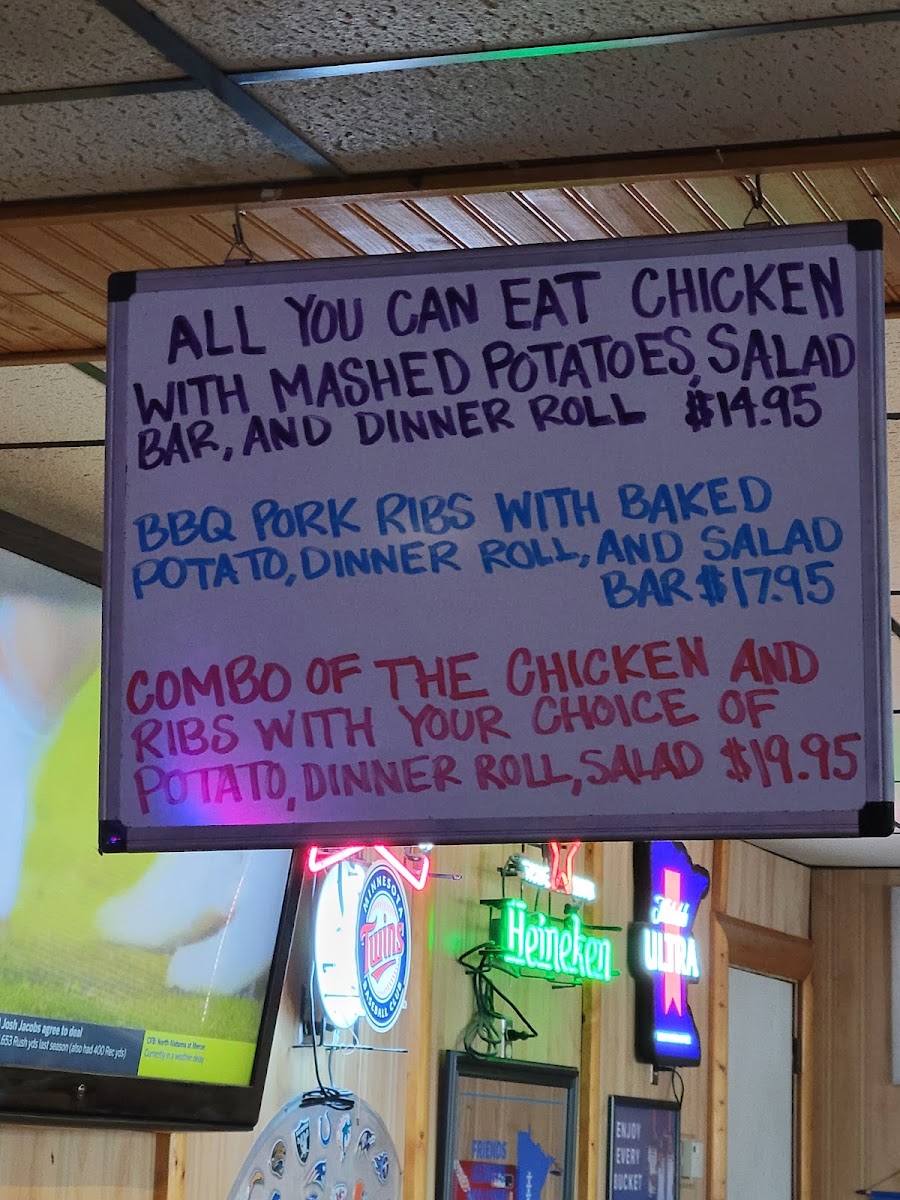 ALL YOU CAN EAT CHICKEN
WITH MASHED POTATOES, SALAD
BAR, AND DINNER ROLL $14.95
BBQ PORK RIBS WITH BAKED
POTATO, DINNER ROLL, AND SALAD
BAR $17.95
COMBO OF THE CHICKEN AND
RIBS WITH YOUR CHOICE OF
POTATO, DINNER ROLL, SALAD $19.95
MINNESOTA
Twins
BASEBALL CLUB
Heineken
ULTRA
Josh Jacobs agree to deal
,653 Rush yds last season (also had 400 Rec yds)
CFB: North Alabama at Mercer
Currently in a weather delay
FRIENDS
ENJOY
EVERY
BUCKET